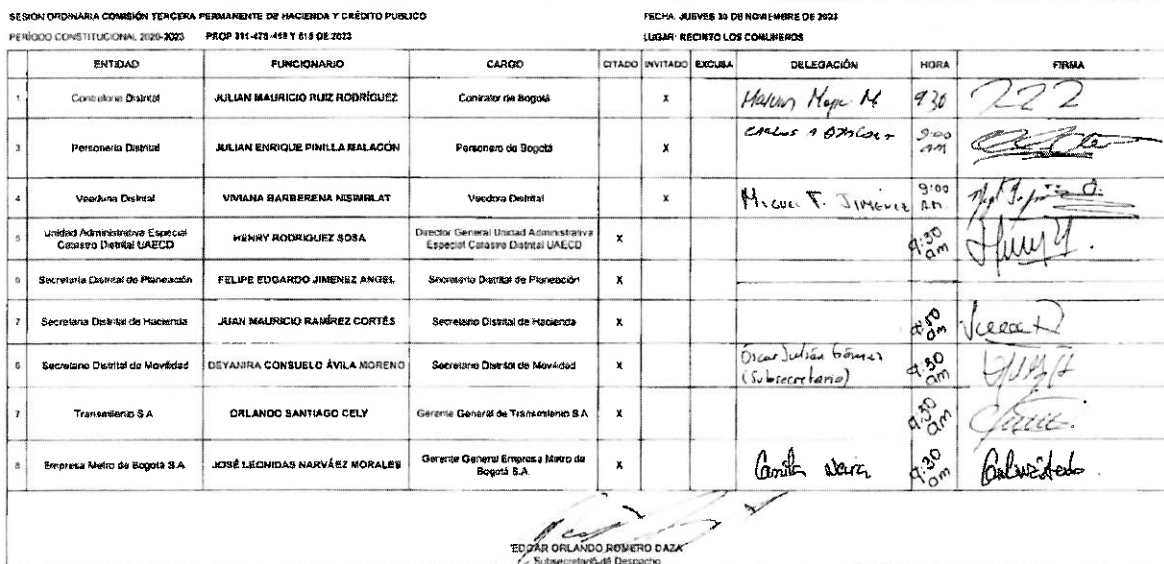 SESIÓN ORDINARIA COMISIÓN TERCERA PERMANENTE DE HACIENDA Y CRÉDITO PUBLICO
FECHA: JUEVES 30 DE NOVIEMBRE DE 2023
PERÍODO CONSTITUCIONAL 2020-2023 PROP 311-478-
Y 615 DE 2023
LUGAR: RECINTO LOS COMUNEROS
ENTIDAD FUNCIONARIO CARGO CITADO INVITADO EXCUSA DELEGACIÓN HORA FIRMA
1 Contraloria Distrital JULIAN MAURICIO RUIZ RODRÍGUEZ Contralor de Bogotá X 9 30
3 Personería Distrital JULIAN ENRIQUE PINILLA MALAGÓN Personero de Bogotá X 9:00 AM
4 Veeduria Distrital VIVIANA BARBERENA NISIMBLAT Veedora Distrital X Miguel F. Jiménez 9:00 A.M.
5 Unidad Administrativa Especial Catastro Distrital UAECD HENRY RODRIGUEZ SOSA Director General Unidad Administrativa Especial Catastro Distrital UAECD X 9:30 am
6 Secretaria Distrital de Planeación FELIPE EDGARDO JIMENEZ ANGEL Secretario Distrital de Planeación X
7 Secretaria Distrital de Hacienda JUAN MAURICIO RAMÍREZ CORTÉS Secretario Distrital de Hacienda X am
6 Secretario Distrital de Movilidad DEYANIRA CONSUELO ÁVILA MORENO Secretario Distrital de Movilidad X Óscar Julián Gómez (Subsecretario) 9:30 am
7 Transmilenio S.A ORLANDO SANTIAGO CELY Gerente General de Transmilenio S.A X 9:30 am
8 Empresa Metro de Bogotá S.A. JOSÉ LEONIDAS NARVÁEZ MORALES Gerente General Empresa Metro de Bogotá S.A. X Camila Neira 9:30 am
EDGAR ORLANDO ROMERO DAZA
Subsecretario de Despacho